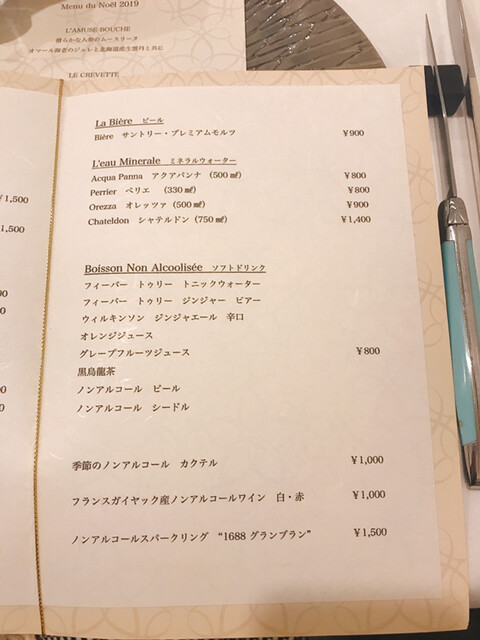 Menu du Noël 2019
L'AMUSE-BOUCHE
滑らかな人参のムースリーヌ
オマール海老のジュレと北海道産生雲丹と共に
LE CREVETTE
¥1,500
¥1,500
La Bière ビール
Bière サントリー・プレミアムモルツ ¥900
L'eau Minerale ミネラルウォーター
Acqua Panna アクアパンナ (500㎖) ¥800
Perrier ペリエ (330㎖) ¥800
Orezza オレッツァ (500㎖) ¥900
Chateldon シャテルドン (750㎖) ¥1,400
Boisson Non Alcoolisée ソフトドリンク
フィーバー トゥリー トニックウォーター
フィーバー トゥリー ジンジャー ビアー
ウィルキンソン ジンジャエール 辛口
オレンジジュース
グレープフルーツジュース ¥800
黒烏龍茶
ノンアルコール ビール
ノンアルコール シードル
季節のノンアルコール カクテル ¥1,000
フランスガイヤック産ノンアルコールワイン 白・赤 ¥1,000
ノンアルコールスパークリング “1688 グランブラン” ¥1,500